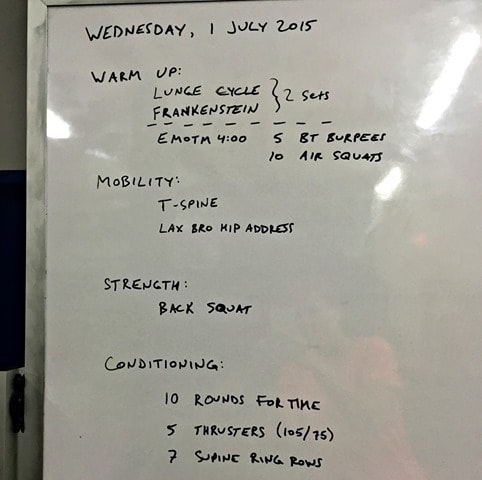 WEDNESDAY, 1 JULY 2015
WARM UP:
LUNGE CYCLE
FRANKENSTEIN } 2 Sets
EMOTM 4:00 5 BT BURPEES
10 AIR SQUATS
MOBILITY:
T-SPINE
LAX BRO HIP ADDRESS
STRENGTH:
BACK SQUAT
CONDITIONING:
10 ROUNDS FOR TIME
5 THRUSTERS (105/75)
7 SUPINE RING ROWS